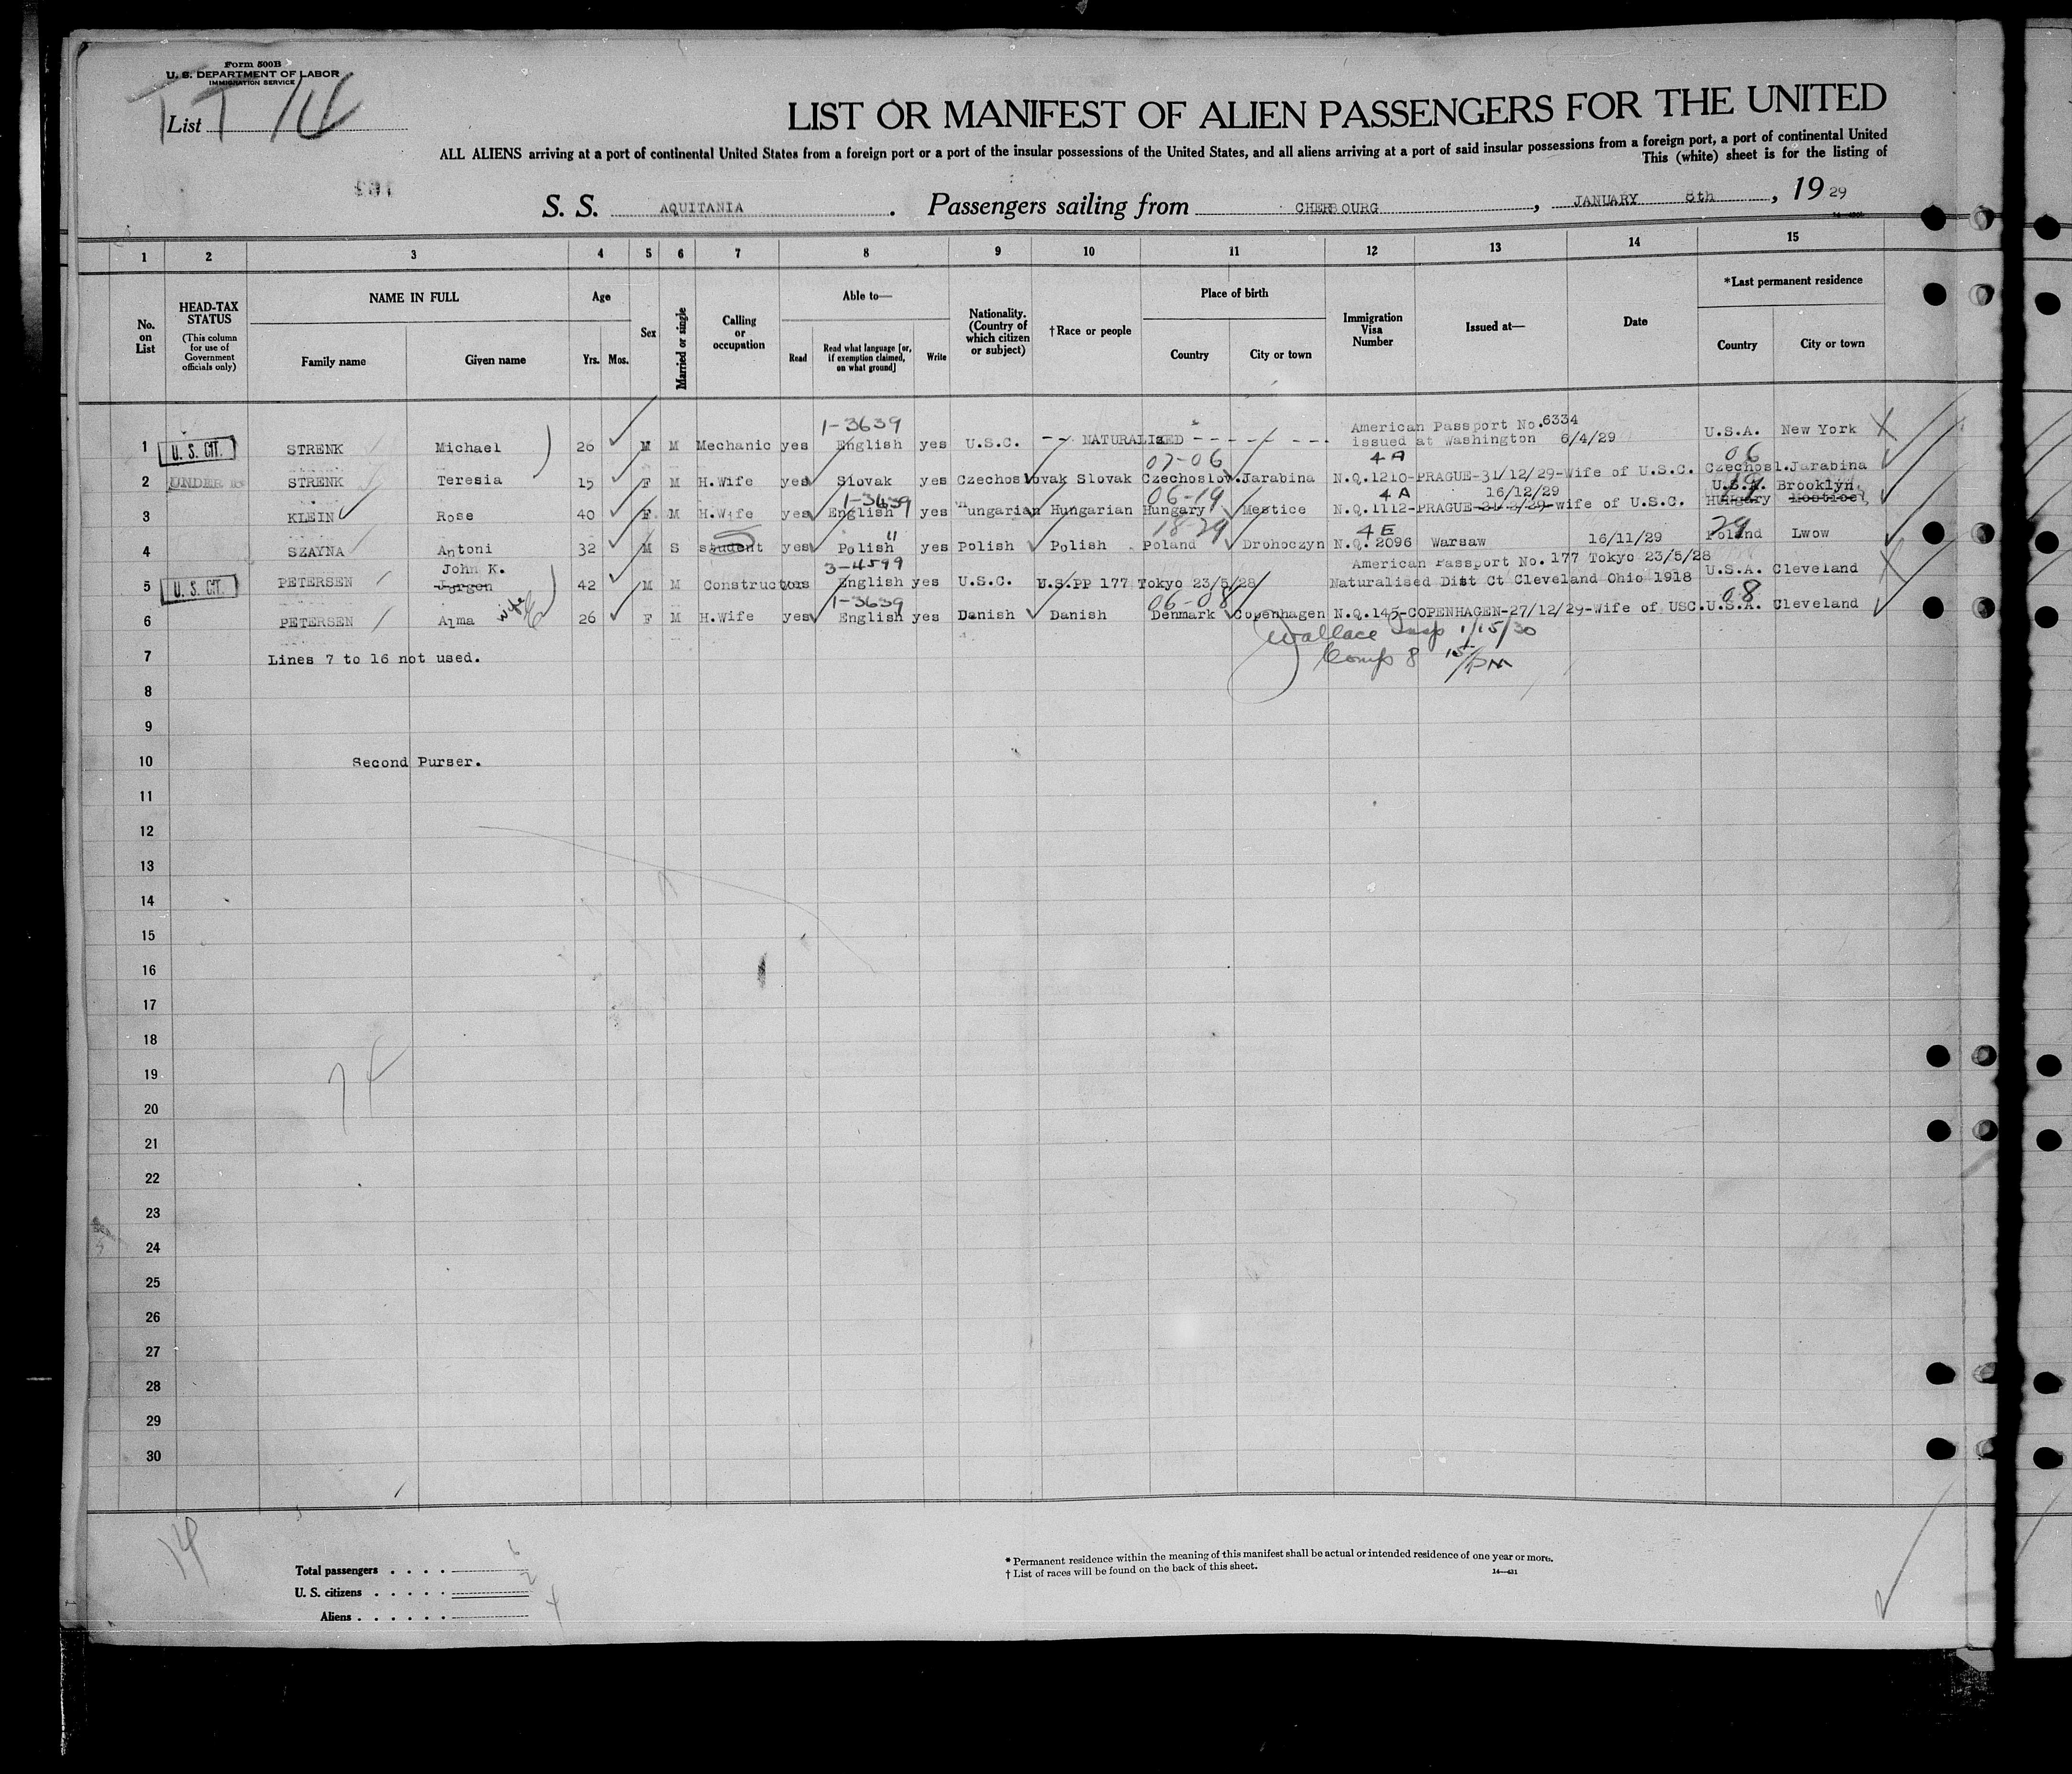 Form 500B
U. S. DEPARTMENT OF LABOR
IMMIGRATION SERVICE
List
LIST OR MANIFEST OF ALIEN PASSENGERS FOR THE UNITED
ALL ALIENS arriving at a port of continental United States from a foreign port or a port of the insular possessions of the United States, and all aliens arriving at a port of said insular possessions from a foreign port, a port of continental United
This (white) sheet is for the listing of
S. S. AQUITANIA . Passengers sailing from CHERBOURG , JANUARY 8th , 19 29
1 2 3 4 5 6 7 8 9 10 11 12 13 14 15
No. on List
HEAD-TAX STATUS (This column for use of Government officials only)
NAME IN FULL
Family name Given name
Age
Yrs. Mos.
Sex
Married or single
Calling or occupation
Able to—
Read Read what language [or, if exemption claimed, on what ground] Write
Nationality. (Country of which citizen or subject)
†Race or people
Place of birth
Country City or town
Immigration Visa Number
Issued at—
Date
*Last permanent residence
Country City or town
1-3639
American Passport No. 6334
1 U. S. CIT. STRENK Michael 26 M M Mechanic yes English yes U.S.C. NATURALIZED issued at Washington 6/4/29 U.S.A. New York
07-06 4A 06
2 UNDER STRENK Teresia 15 F M H.Wife yes Slovak yes Czechoslovak Slovak Czechoslov. Jarabina N.Q.1210-PRAGUE-31/12/29-Wife of U.S.C. Czechosl. Jarabina
1-3639 06-19 4A 16/12/29 U.S.A. Brooklyn
3 KLEIN Rose 40 F M H.Wife yes English yes Hungarian Hungarian Hungary Mestice N.Q.1112-PRAGUE- wife of U.S.C. Hungary Mestice
18-29 4E 29
4 SZAYNA Antoni 32 M S student yes Polish yes Polish Polish Poland Drohoczyn N.Q. 2096 Warsaw 16/11/29 Poland Lwow
John K. 3-4599 American Passport No. 177 Tokyo 23/5/28
5 U. S. CIT. PETERSEN Jorgen 42 M M Constructor yes English yes U.S.C. U.S.PP 177 Tokyo 23/5/28 Naturalised Dist Ct Cleveland Ohio 1918 U.S.A. Cleveland
wife 1-3639 06-08 08
6 PETERSEN Alma 26 F M H.Wife yes English yes Danish Danish Denmark Copenhagen N.Q.145-COPENHAGEN-27/12/29-Wife of USC. U.S.A. Cleveland
Wallace Insp 1/15/30
7 Lines 7 to 16 not used.
8
9
10 Second Purser.
11
12
13
14
15
16
17
18
19
20
21
22
23
24
25
26
27
28
29
30
Total passengers 6
U. S. citizens 2
Aliens 4
* Permanent residence within the meaning of this manifest shall be actual or intended residence of one year or more.
† List of races will be found on the back of this sheet.
14—421